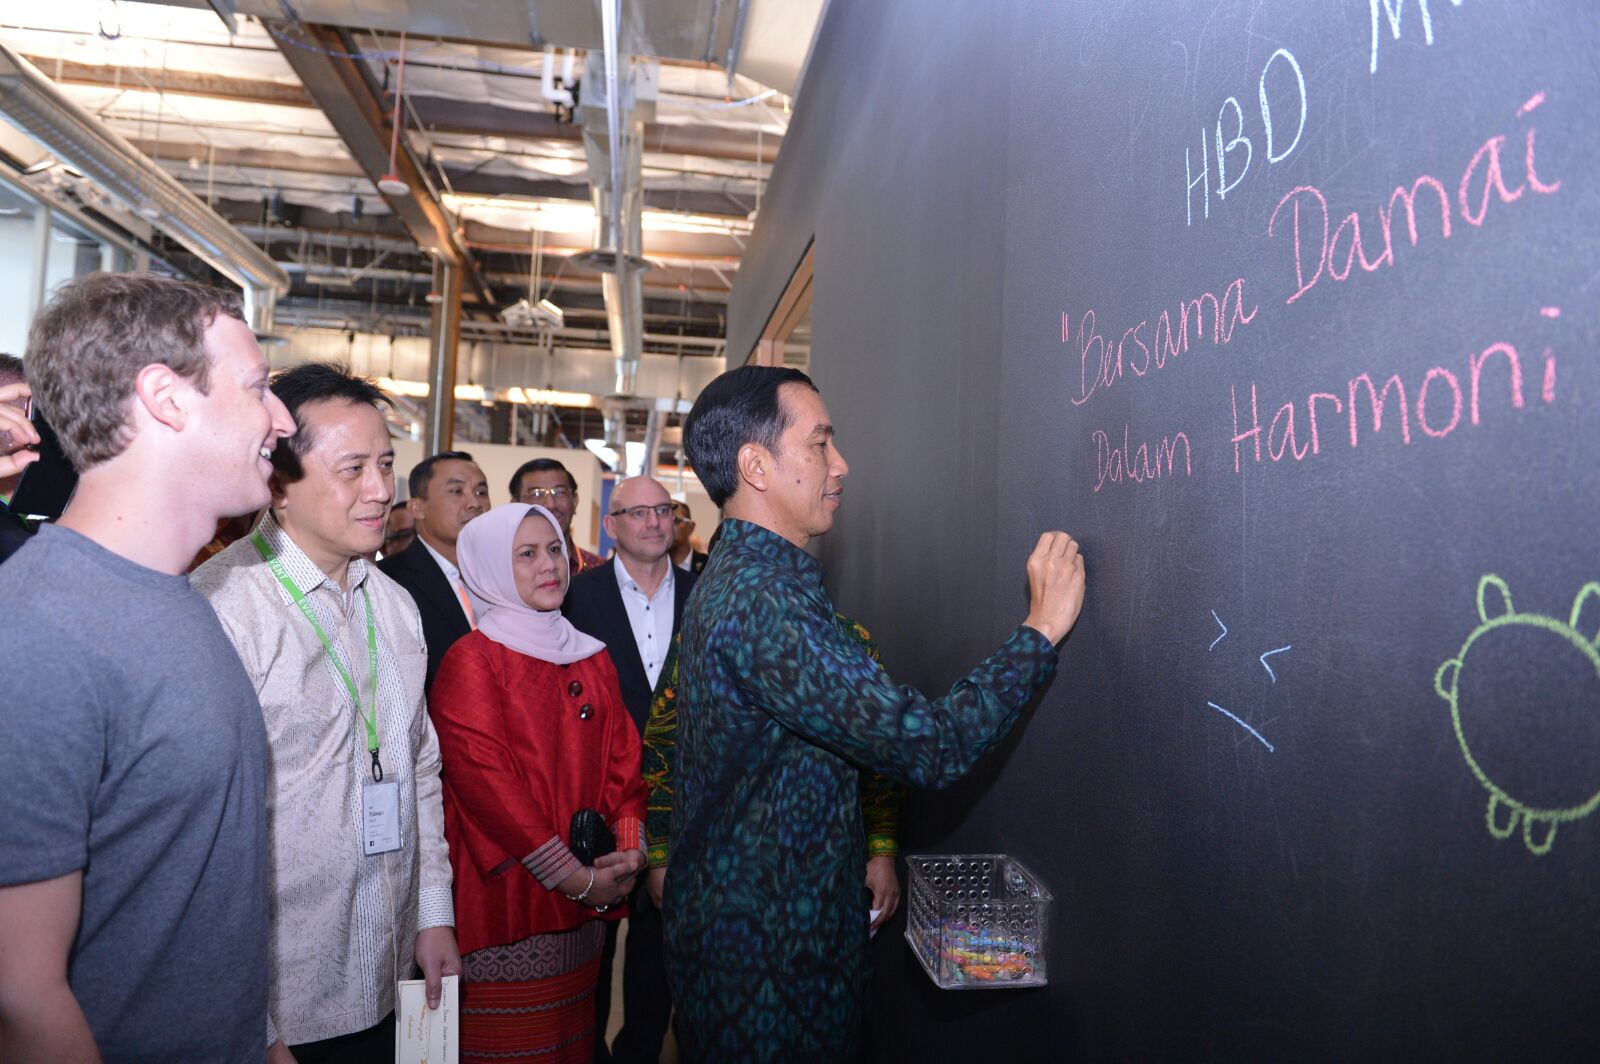 HBD
"Bersama Damai
Dalam Harmoni
EVENT